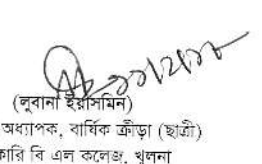 (লুবানা ইয়াসমিন)
অধ্যাপক, বার্ষিক ক্রীড়া (ছাত্রী)
কারি বি এল কলেজ, খুলনা